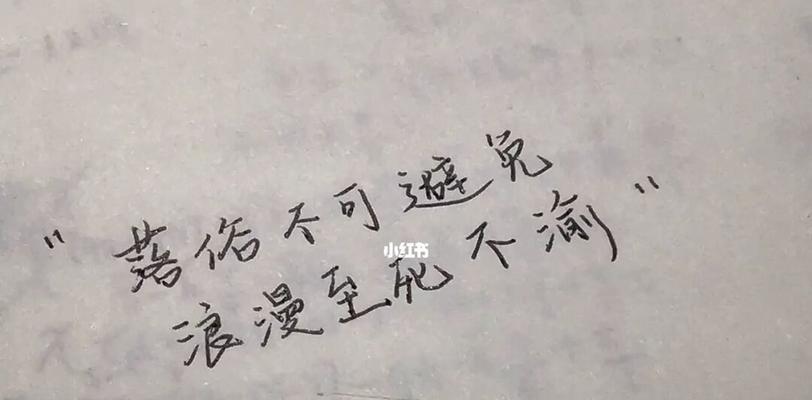 "落俗不可避免
小红书
浪漫至死不渝"